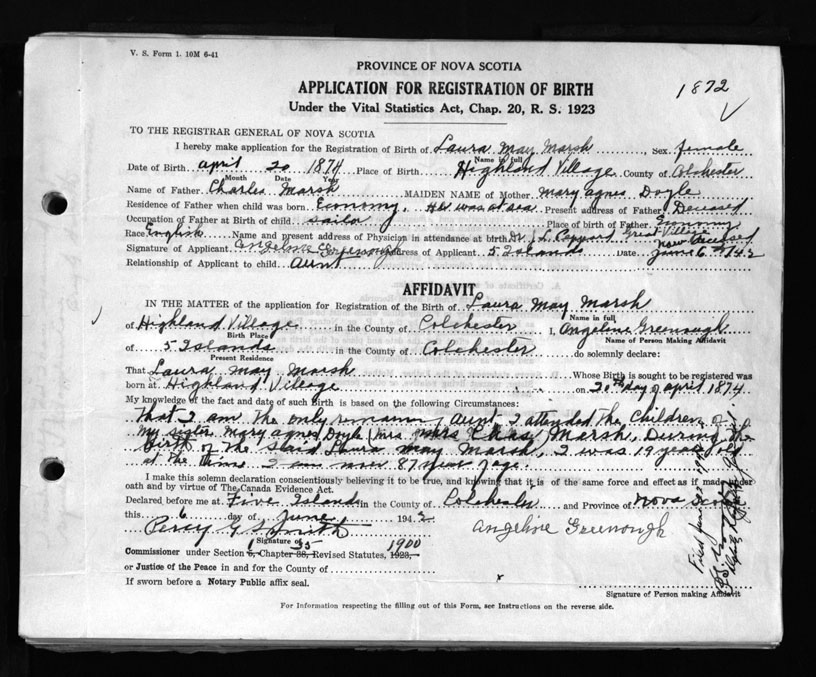 V. S. Form 1. 10M 6-41
PROVINCE OF NOVA SCOTIA
APPLICATION FOR REGISTRATION OF BIRTH
Under the Vital Statistics Act, Chap. 20, R. S. 1923
1872
TO THE REGISTRAR GENERAL OF NOVA SCOTIA
I hereby make application for the Registration of Birth of Laura May Marsh, Sex female
Name in full
Date of Birth April 20 1874 Place of Birth Highland Village County of Colchester
Month Date Year
Name of Father Charles Marsh MAIDEN NAME of Mother Mary Agnes Doyle
Residence of Father when child was born Economy. He was at sea Present address of Father Deceased
Occupation of Father at Birth of child sailor Place of birth of Father Economy
Race English Name and present address of Physician in attendance at birth Dr. Great Village now Deceased
Signature of Applicant Angeline Greenough Address of Applicant 5 Islands Date June 6th 1942
Relationship of Applicant to child Aunt
AFFIDAVIT
IN THE MATTER of the application for Registration of the Birth of Laura May Marsh
Name in full
of Highland Village in the County of Colchester I, Angeline Greenough
Birth Place Name of Person Making Affidavit
of 5 Islands in the County of Colchester do solemnly declare:
Present Residence
That Laura May Marsh Whose Birth is sought to be registered was
born at Highland Village on 20th day of April 1874
My knowledge of the fact and date of such Birth is based on the following Circumstances:
That I am the only remaing Aunt I attended the Children of
my sister Mary Agnes Doyle (Mrs Chas Marsh, During the
Birth of the said Laura May Marsh, I was 19 years old
at the time I am now 87 years age.
I make this solemn declaration conscientiously believing it to be true, and knowing that it is of the same force and effect as if made under
oath and by virtue of The Canada Evidence Act.
Declared before me at Five Islands in the County of Colchester and Province of Nova Scotia
this 6 day of June 1942
Percy Smith Angeline Greenough
Signature of
Commissioner under Section 6, 1 Chapter 38, 35 Revised Statutes, 1923, 1900
or Justice of the Peace in and for the County of
If sworn before a Notary Public affix seal.
Signature of Person making Affidavit
For Information respecting the filling out of this Form, see Instructions on the reverse side.